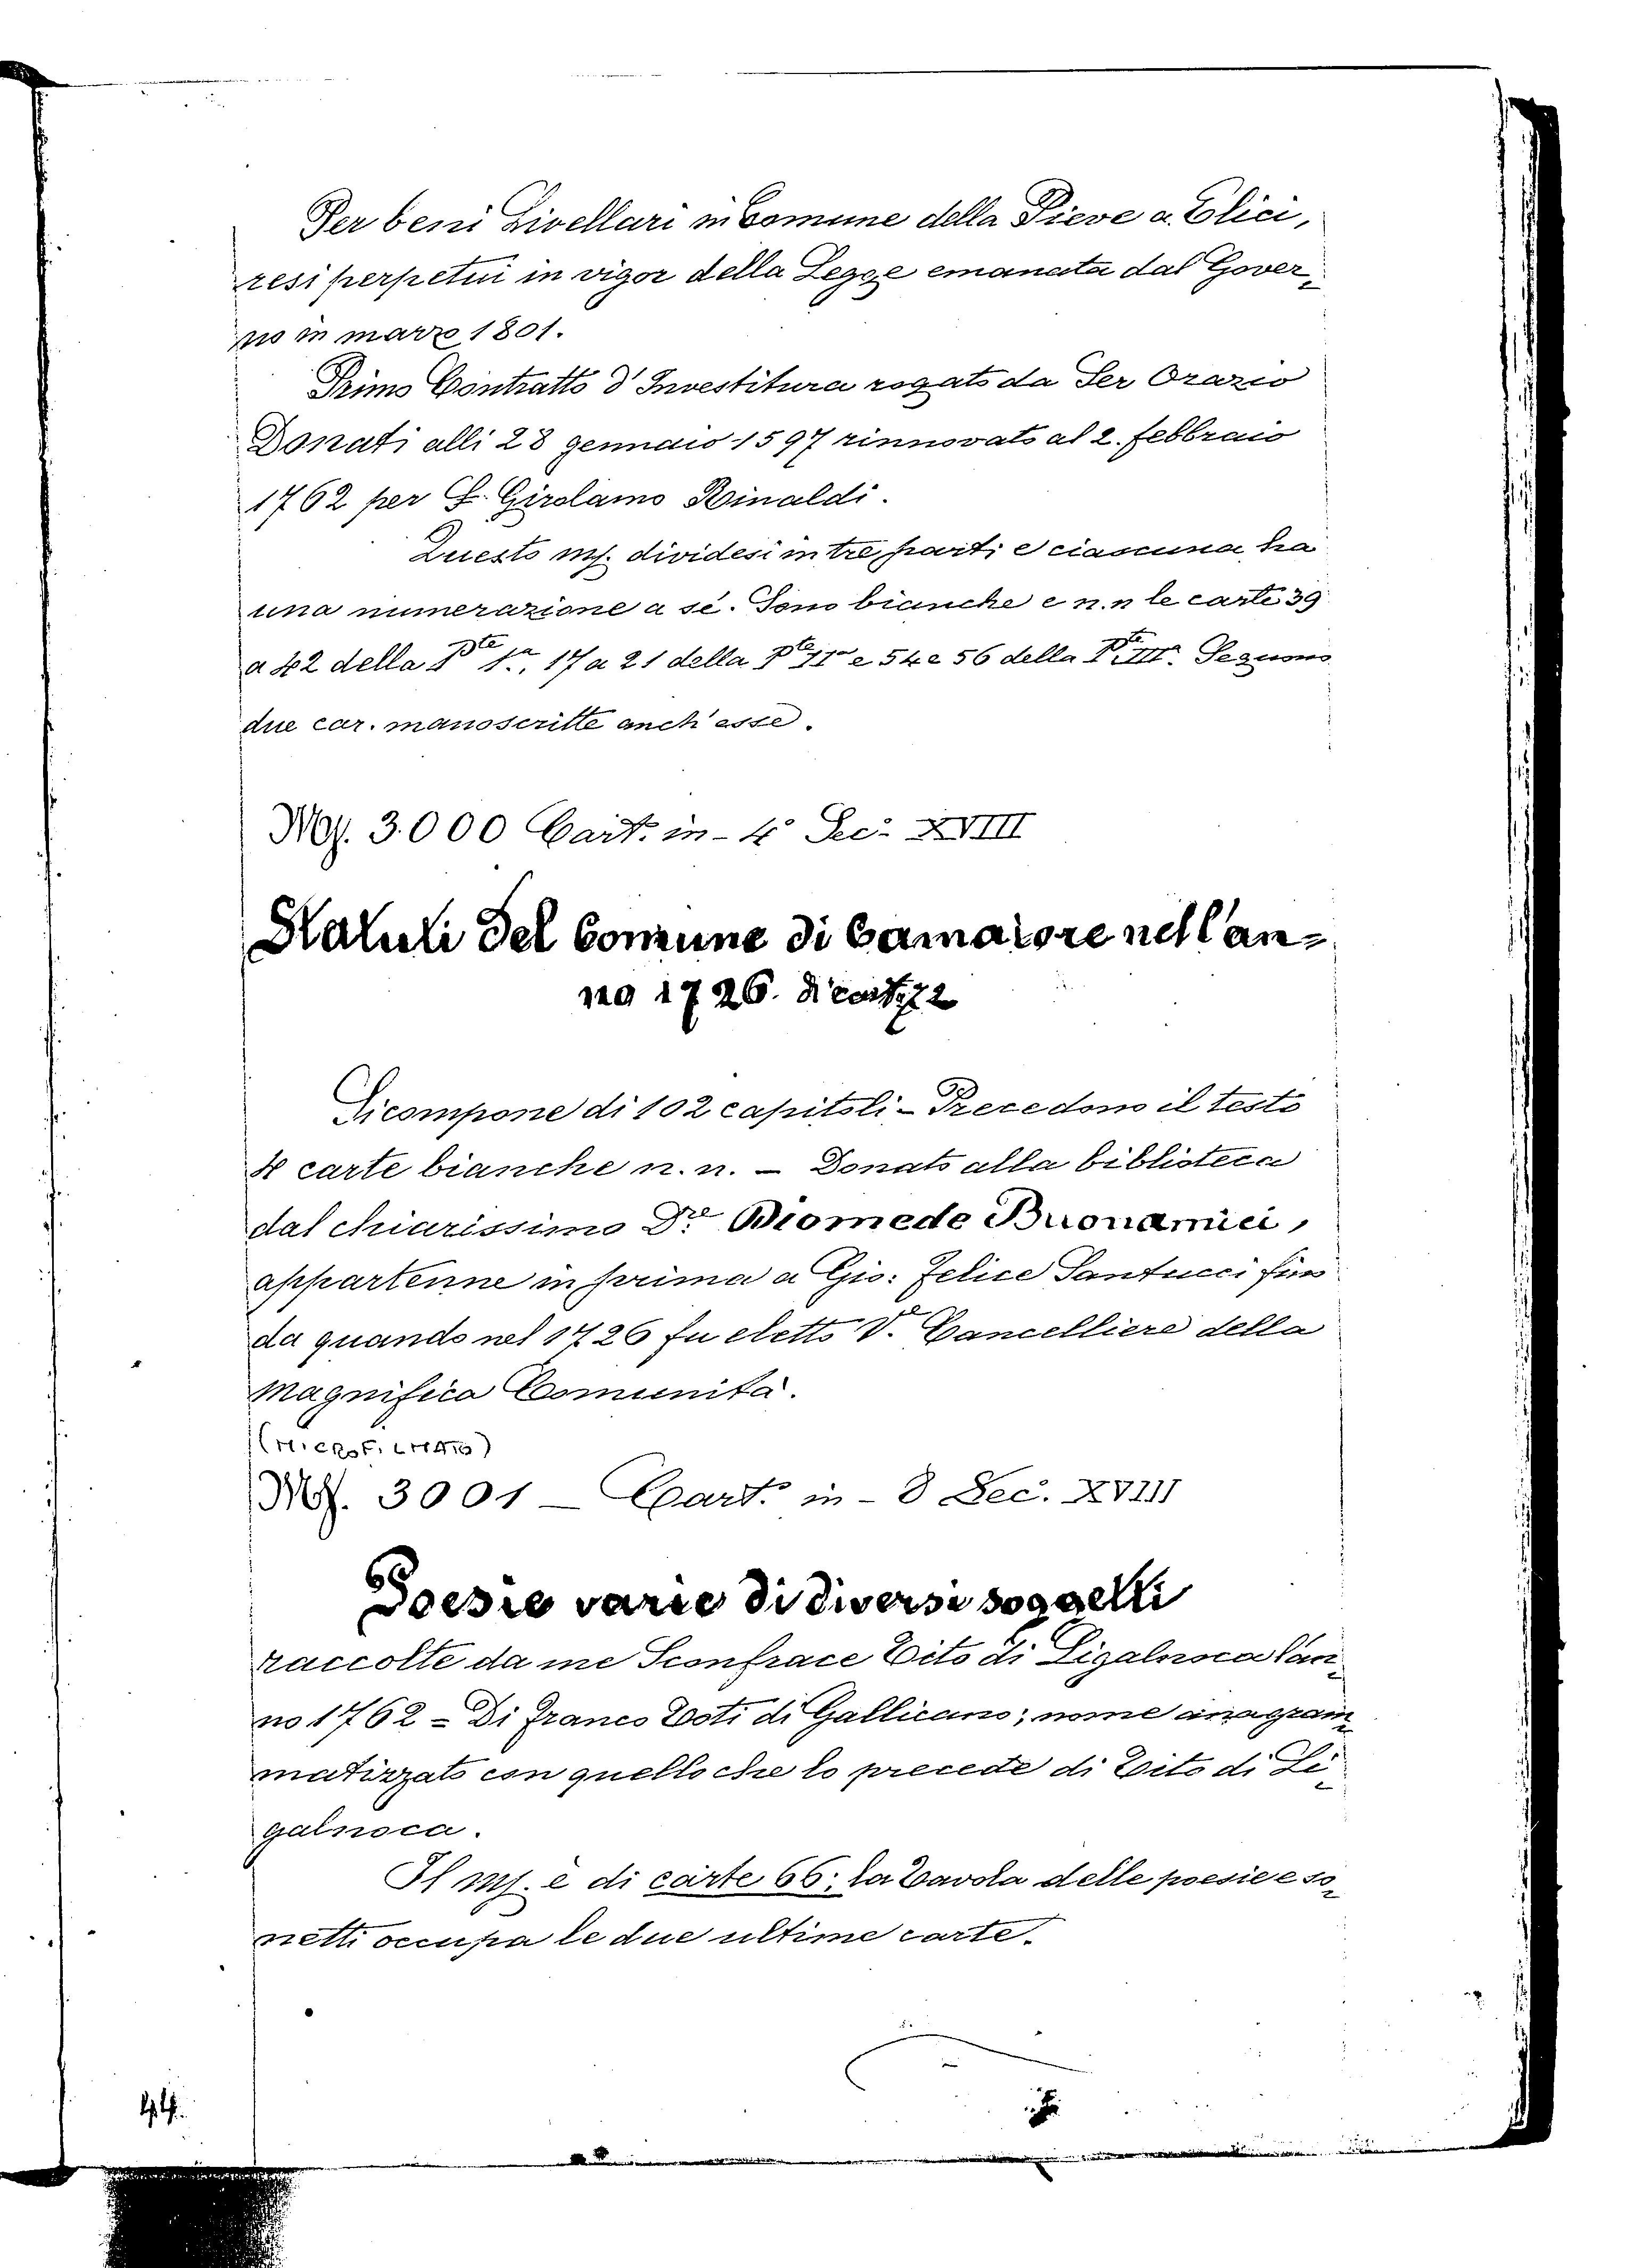 Per beni Livellari in Comune della Pieve a Elici,
resi perpetui in vigor della Legge emanata dal Gover-
no in marzo 1801.
Primo Contratto d'Investitura rogato da Ser Orazio
Donati alli 28 gennaio 1597 rinnovato al 2. febbraio
1762 per S. Girolamo Rinaldi.
Questo ms. dividesi in tre parti e ciascuna ha
una numerazione a sé. Sono bianche e n.n le carte 39
a 42 della Pte Ia, 17 a 21 della Pte IIa e 54 e 56 della Pte IIIa. Seguono
due car. manoscritte anch'esse.
Ms. 3000 Cart. in-4° Sec: XVIII
Statuti del Comune di Camaiore nell'an-
no 1726. di cart. 72
Si compone di 102 capitoli - Precedono il testo
4 carte bianche n. n. - Donato alla biblioteca
dal chiarissimo Dre Diomede Buonamici,
appartenne in prima a Gio: Felice Santucci fino
da quando nel 1726 fu eletto V. Cancelliere della
Magnifica Comunità.
(MICROFILMATO)
Ms. 3001 - Cart. in-8 Sec. XVIII
Poesie varie di diversi soggetti
raccolte da me Sconfrace Vito di Ligalnoca l'an-
no 1762 = Di Franco Voti di Gallicano; nome anagram-
matizzato con quello che lo precede di Vito di Li-
galnoca.
Il ms. è di carte 66: la Tavola delle poesie e so-
netti occupa le due ultime carte.
44.